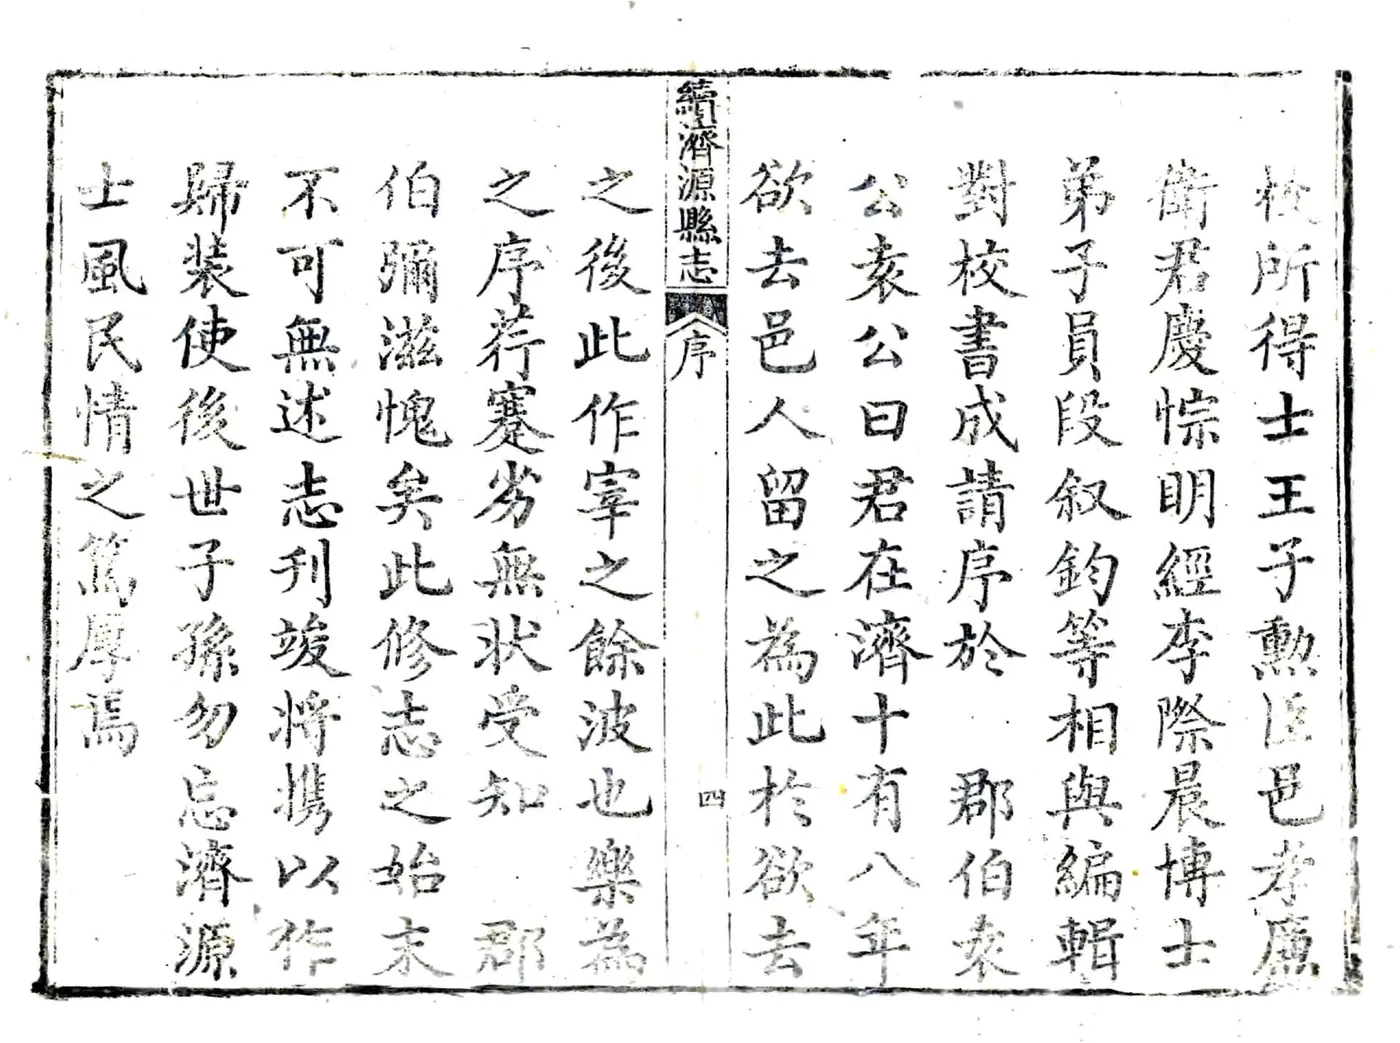 校所得士王子勲臣邑孝廉
衛君慶悰明經李際晨博士
弟子員段叙鈞等相與編輯
對校書成請序於 郡伯袁
公袁公曰君在濟十有八年
欲去邑人留之為此於欲去
續濟源縣志 序 四
之後此作宰之餘波也樂為
之序荇蹇劣無狀受知 郡
伯彌滋愧矣此修志之始末
不可無述志刋竣將携以作
歸装使後世子孫勿忘濟源
士風民情之篤厚焉